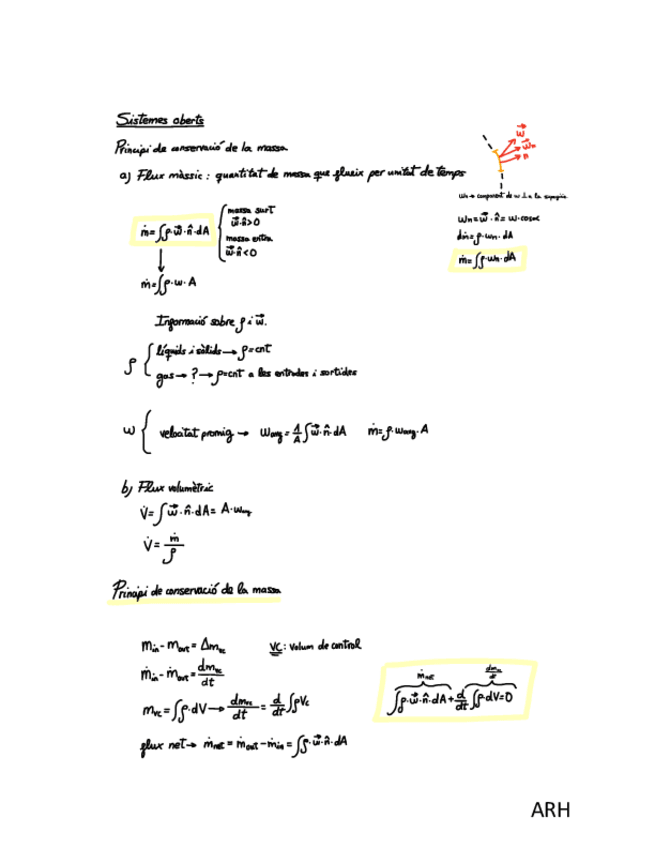 Sistemes oberts
Principi de conservació de la massa
a) Flux màssic : quantitat de massa que flueix per unitat de temps
w⃗
w⃗n
n
wn → component de w ⊥ a la superfície
ṁ = ∫ρ·w⃗·n̂·dA { massa surt
w⃗·n̂>0
massa entra
w⃗·n̂<0
wn = w⃗·n̂ = w·cosα
dṁ = ρ·wn·dA
ṁ = ∫ρ·wn·dA
ṁ = ∫ρ·w·A
Informació sobre ρ i w⃗.
ρ { líquids i sòlids → ρ=cnt
gas → ? → ρ=cnt a les entrades i sortides
w { velocitat promig → wavg = 1/A ∫w⃗·n̂·dA ṁ = ρ·wavg·A
b) Flux volumètric
V̇ = ∫w⃗·n̂·dA = A·wavg
V̇ = ṁ/ρ
Principi de conservació de la massa
min - mout = Δmvc VC : Volum de control
ṁin - ṁout = dmvc/dt
mvc = ∫ρ·dV → dmvc/dt = d/dt ∫ρVc
flux net → ṁnet = ṁout - ṁin = ∫ρ·w⃗·n̂·dA
ṁnet dmvc/dt
∫ρ·w⃗·n̂·dA + d/dt ∫ρ·dV = 0
ARH